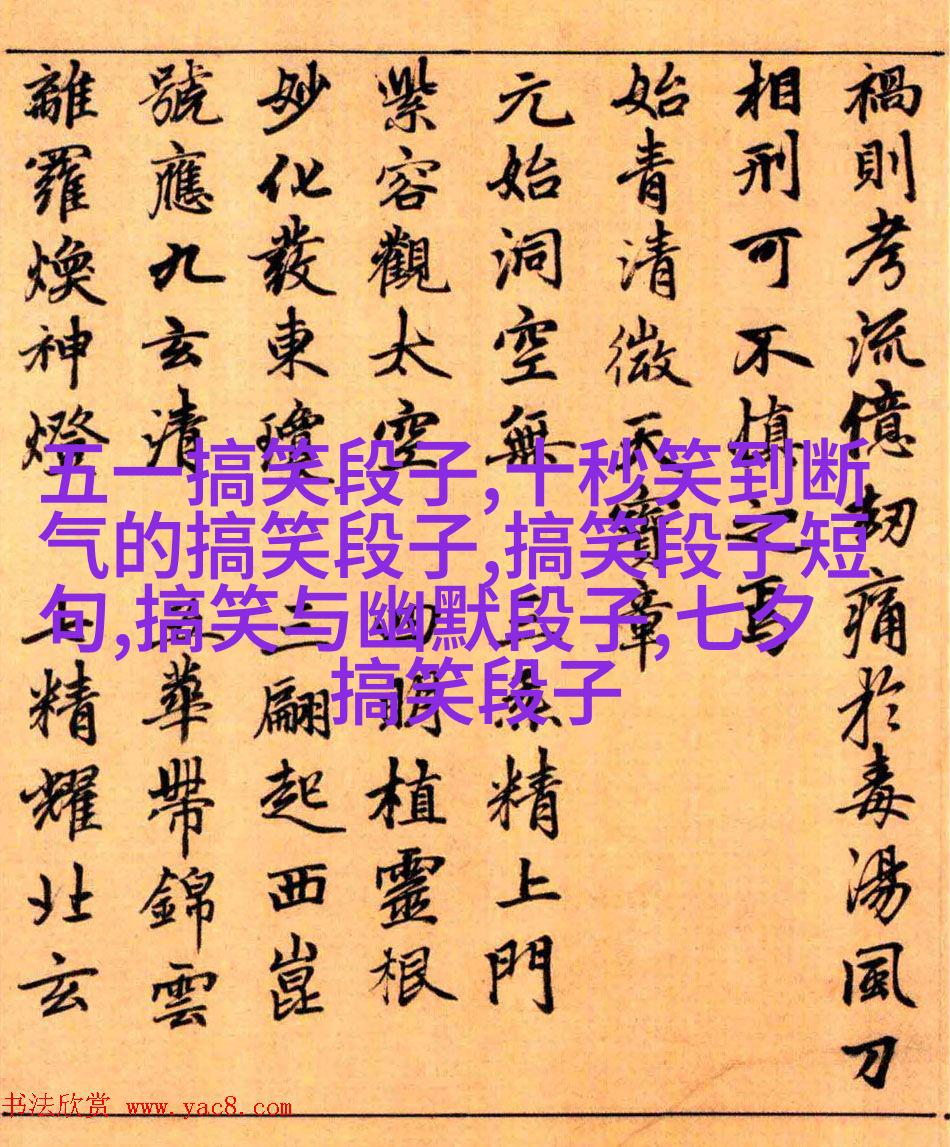 禍則考流億劫痛於毒湯風刀
相刑可不慎之焉
始青清微天寶章
元始洞空無上炁精上門
紫容觀太空四明植靈根
妙化發東瓊三翩起西崑
號應九玄清華帶錦雲
離羅煥神燈上精耀北玄
五一搞笑段子,十秒笑到断
气的搞笑段子,搞笑段子短
句,搞笑与幽默段子,七夕
搞笑段子
书法欣赏 www.yac8.com